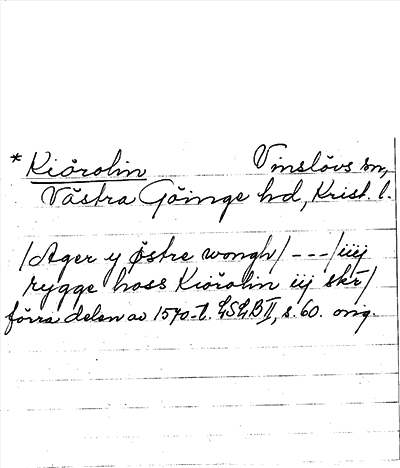 * Kiörolin Vinslövs sn,
Västra Göinge hd, Krist. l.
/Ager y østre wongh/ --- /iiij
rygge hoss Kiörolin iij skr/
förra delen av 1570-t. LSLB II, s. 60. orig.